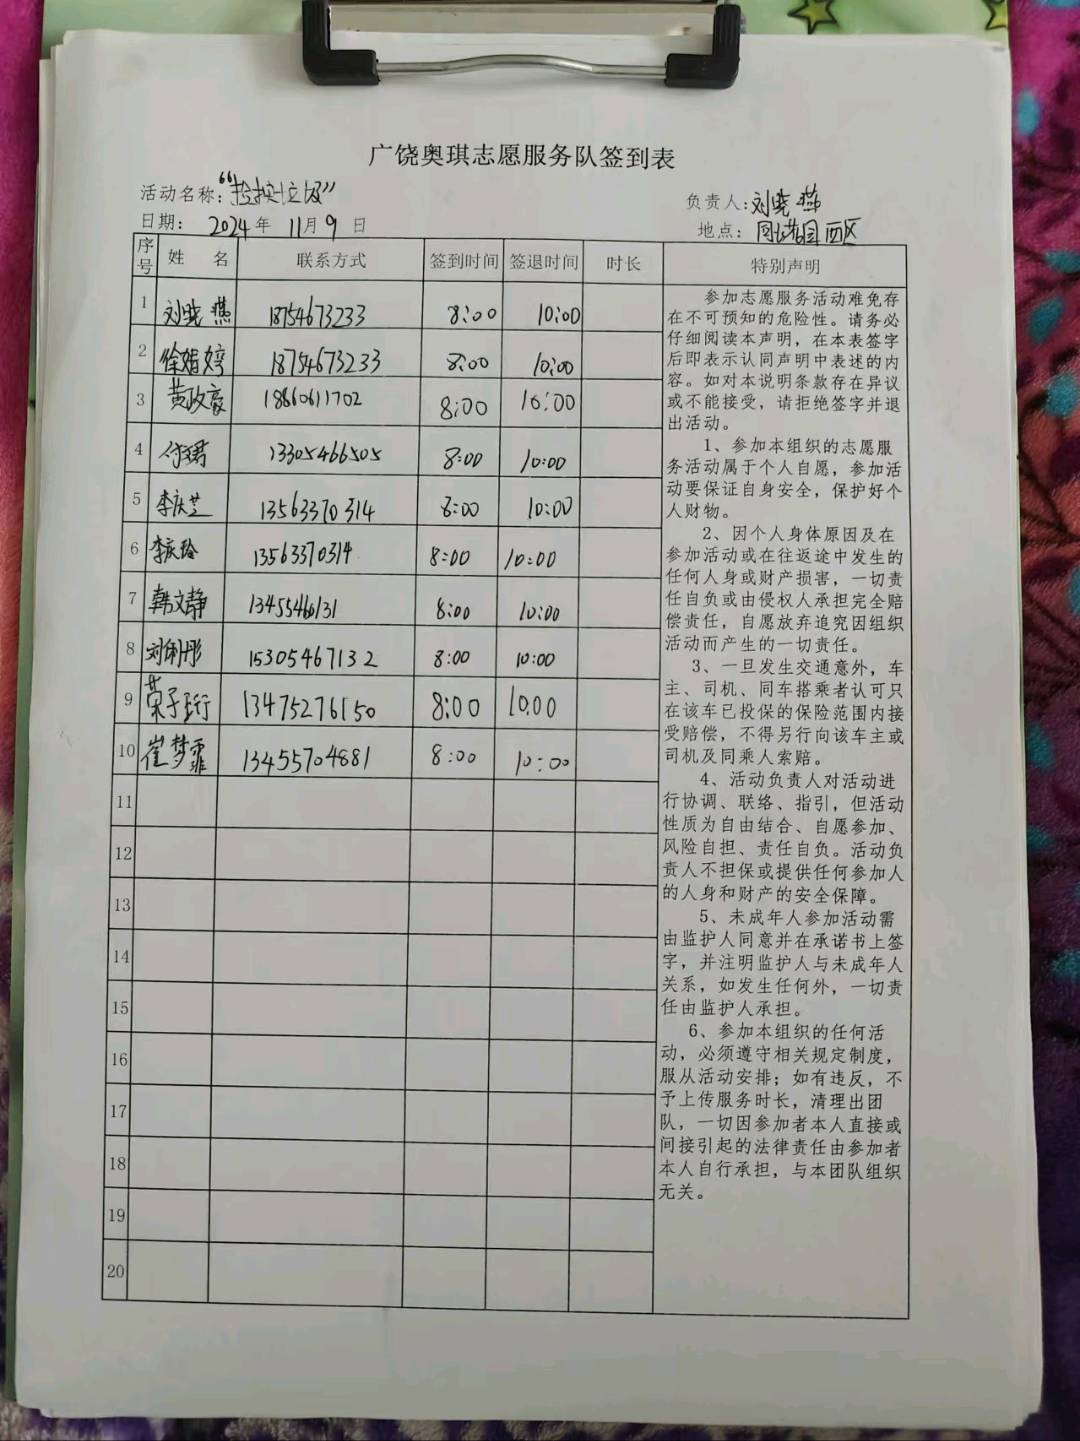 广饶奥琪志愿服务队签到表
活动名称：“捡垃圾”
负责人：刘晓燕
日期： 2024年 11月 9 日
地点： 西区
序号 姓 名 联系方式 签到时间 签退时间 时长 特别声明
1 刘晓燕 18754673233 8:00 10:00
2 徐婧婷 18754673233 8:00 10:00
3 黄政豪 18660611702 8:00 10:00
4 付珺 13305466505 8:00 10:00
5 李庆芝 13563370314 8:00 10:00
6 李庆玲 13563370314 8:00 10:00
7 韩文静 13455460131 8:00 10:00
8 刘俐彤 15305467132 8:00 10:00
9 荣子珩 13475276150 8:00 10:00
10 崔梦霏 13455704881 8:00 10:00
11
12
13
14
15
16
17
18
19
20
参加志愿服务活动难免存
在不可预知的危险性。请务必
仔细阅读本声明，在本表签字
后即表示认同声明中表述的内
容。如对本说明条款存在异议
或不能接受，请拒绝签字并退
出活动。
1、参加本组织的志愿服
务活动属于个人自愿，参加活
动要保证自身安全，保护好个
人财物。
2、因个人身体原因及在
参加活动或在往返途中发生的
任何人身或财产损害，一切责
任自负或由侵权人承担完全赔
偿责任，自愿放弃追究因组织
活动而产生的一切责任。
3、一旦发生交通意外，车
主、司机、同车搭乘者认可只
在该车已投保的保险范围内接
受赔偿，不得另行向该车主或
司机及同乘人索赔。
4、活动负责人对活动进
行协调、联络、指引，但活动
性质为自由结合、自愿参加、
风险自担、责任自负。活动负
责人不担保或提供任何参加人
的人身和财产的安全保障。
5、未成年人参加活动需
由监护人同意并在承诺书上签
字，并注明监护人与未成年人
关系，如发生任何外，一切责
任由监护人承担。
6、参加本组织的任何活
动，必须遵守相关规定制度，
服从活动安排；如有违反，不
予上传服务时长，清理出团
队，一切因参加者本人直接或
间接引起的法律责任由参加者
本人自行承担，与本团队组织
无关。